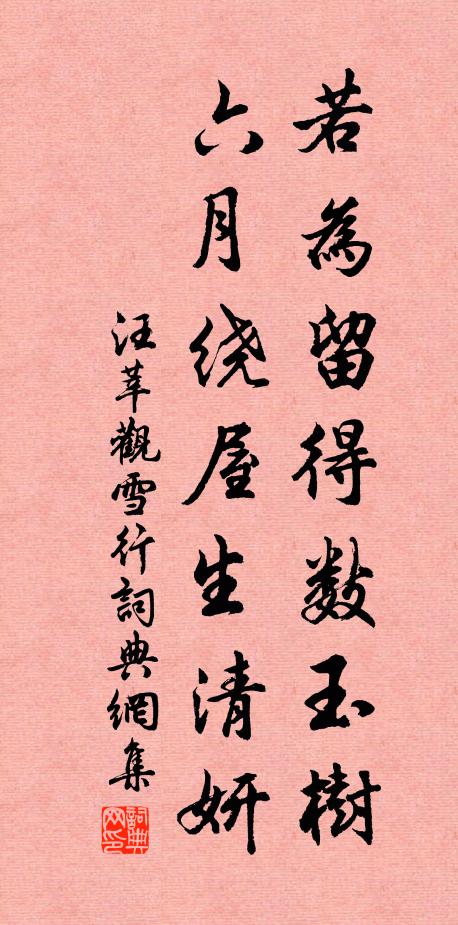 若為留得数玉樹
六月绕屋生清妍
汪莘觀雪行詞典網集
詞典网印